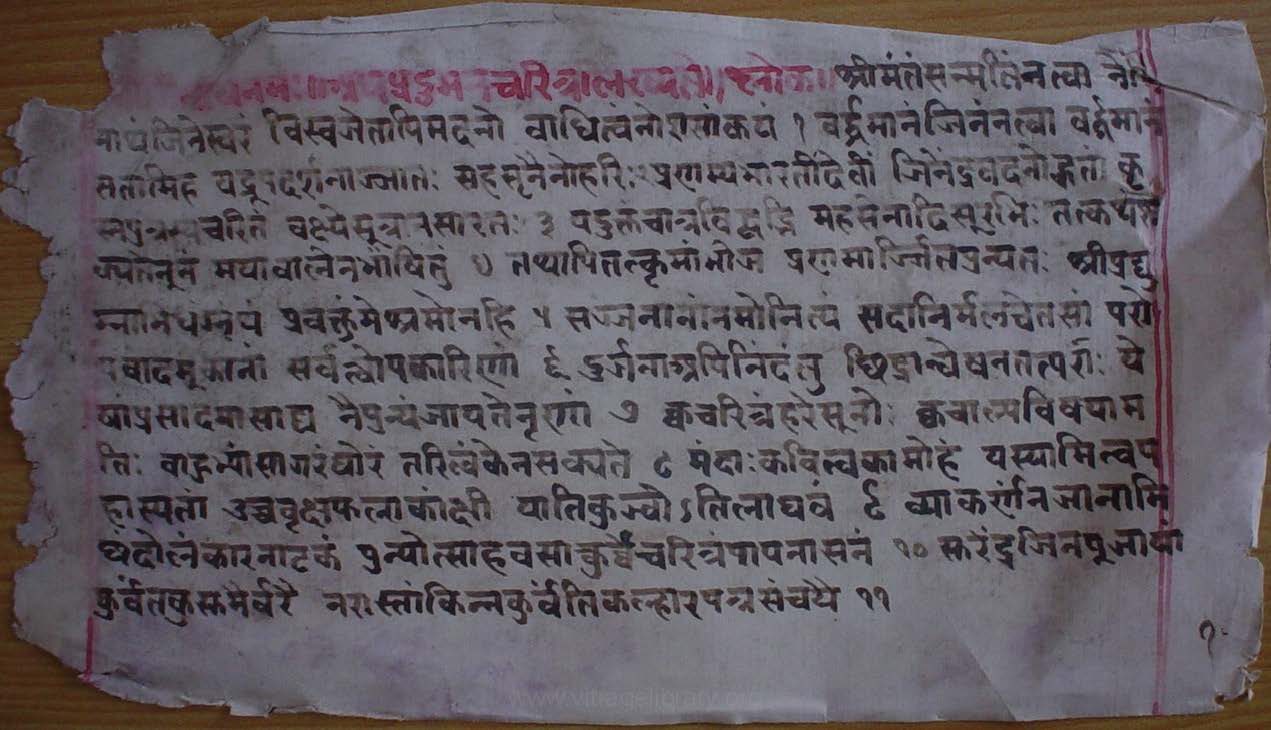 नमः ॥ अथ प्रद्युम्न चरित्र लिख्यते ॥ श्लोक ॥ श्रीमंतंसन्मतिंनत्वा नेमि
नाथंजिनेस्वरं विस्वजेतापिमदनो वाधित्वंनो १ वर्द्धमानंजिनंनत्वा वर्द्धमानं
सतामिह यद्रूपदर्शनाज्जातः सहसृनैनोहरिः २ प्रणम्यभारतीदेवीं जिनेंद्रवदनोद्गतां कृ
चरितं वक्ष्येसूत्रानुसारतः ३ यदुक्तंचात्रविद्वद्भि महसेनादिसूरभिः तत्कथंश
क्यतेनूनं मयावालेनभाषितुं ४ तथापितत्क्रमांभोज प्रणामार्जितपुन्यतः श्रीप्रद्यु
म्नाभिधंग्रंथं प्रवक्तुंमेश्रमोनहि ५ सज्जनानांनमोनित्यं सदानिर्मलचेतसां परो
पवादमूकानां सर्वत्रोपकारिणां ६ दुर्जनाअपिनिंदंतु छिद्रान्वेषनतत्पराः ये
षांप्रसादमासाद्य नैपुन्यंजायतेनृणां ७ क्वचरित्रंहरेसूनोः क्वचाल्पविषयाम
तिः वाहुभ्यांसागरंघोरं तरित्वंकेनसक्यते ८ मंदाःकवित्वकामोहं यस्यामित्वप
हास्यतां उच्चवृक्षफलाकांक्षी यातिकुज्वोऽतिलाघवं ९ व्याकर्णंनजानामि
छंदोलंकारनाटकं पुन्योत्साहवसात्कुर्वेचरित्रंपापनासनं १० सुरेंद्रजिनपूजायां
कुर्वंतकुसुमैर्वरै नरास्तांकिन्नकुर्वंतिकल्हारपत्रसंचयै ११
१
www.vitragelibrary.org